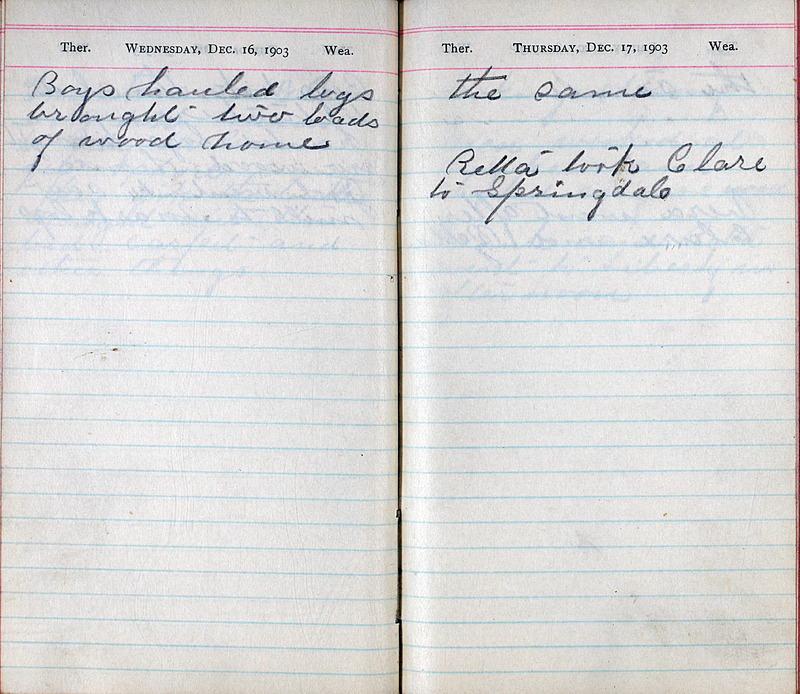 Ther. Wednesday, Dec. 16, 1903 Wea.
Boys hauled logs
brought two loads
of wood home
Ther. Thursday, Dec. 17, 1903 Wea.
the same
Retta took Clare
to Springdale